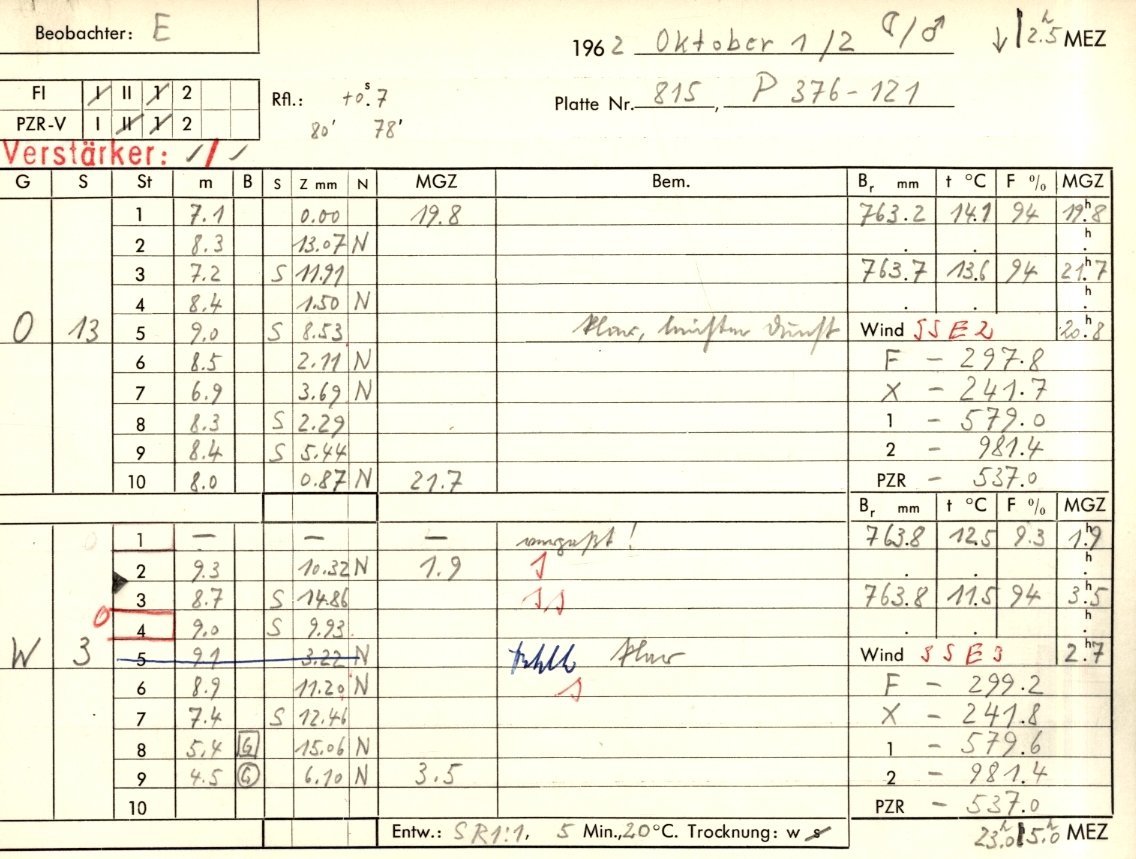 Beobachter: E
1962 Oktober 1/2 ☾/♂ ↓ 2.5ʰ MEZ
FI I II 1 2
PZR-V I II 1 2
Rfl.: +0ˢ.7
80' 78'
Platte Nr. 815, P 376-121
Verstärker: ✓/✓
G S St m B S Z mm N MGZ Bem. Bᵣ mm t °C F % MGZ
1 7.1 0.00 19.8 763.2 14.1 94 19ʰ.8
2 8.3 13.07 N . . ʰ.
3 7.2 S 11.91 763.7 13.6 94 21ʰ.7
4 8.4 1.50 N . . ʰ.
O 13 5 9.0 S 8.53 klar, leichter Dunst Wind SSE 2 20ʰ.8
6 8.5 2.11 N F - 297.8
7 6.9 3.69 N X - 241.7
8 8.3 S 2.29 1 - 579.0
9 8.4 S 5.44 2 - 981.4
10 8.0 0.87 N 21.7 PZR - 537.0
Bᵣ mm t °C F % MGZ
1 — — — vergaßt! 763.8 12.5 9.3 1ʰ.9
2 9.3 10.32 N 1.9 S . . ʰ.
3 8.7 S 14.86 SS 763.8 11.5 94 3ʰ.5
0 4 9.0 S 9.93 . . ʰ.
W 3 5 9.1 3.22 N klar Wind SSE 3 2ʰ.7
6 8.9 11.20 N S F - 299.2
7 7.4 S 12.46 X - 241.8
8 5.4 G 15.06 N 1 - 579.6
9 4.5 G 6.10 N 3.5 2 - 981.4
10 PZR - 537.0
Entw.: SR1:1, 5 Min., 20°C. Trocknung: w s 23ʰ.0 5ʰ.0 MEZ